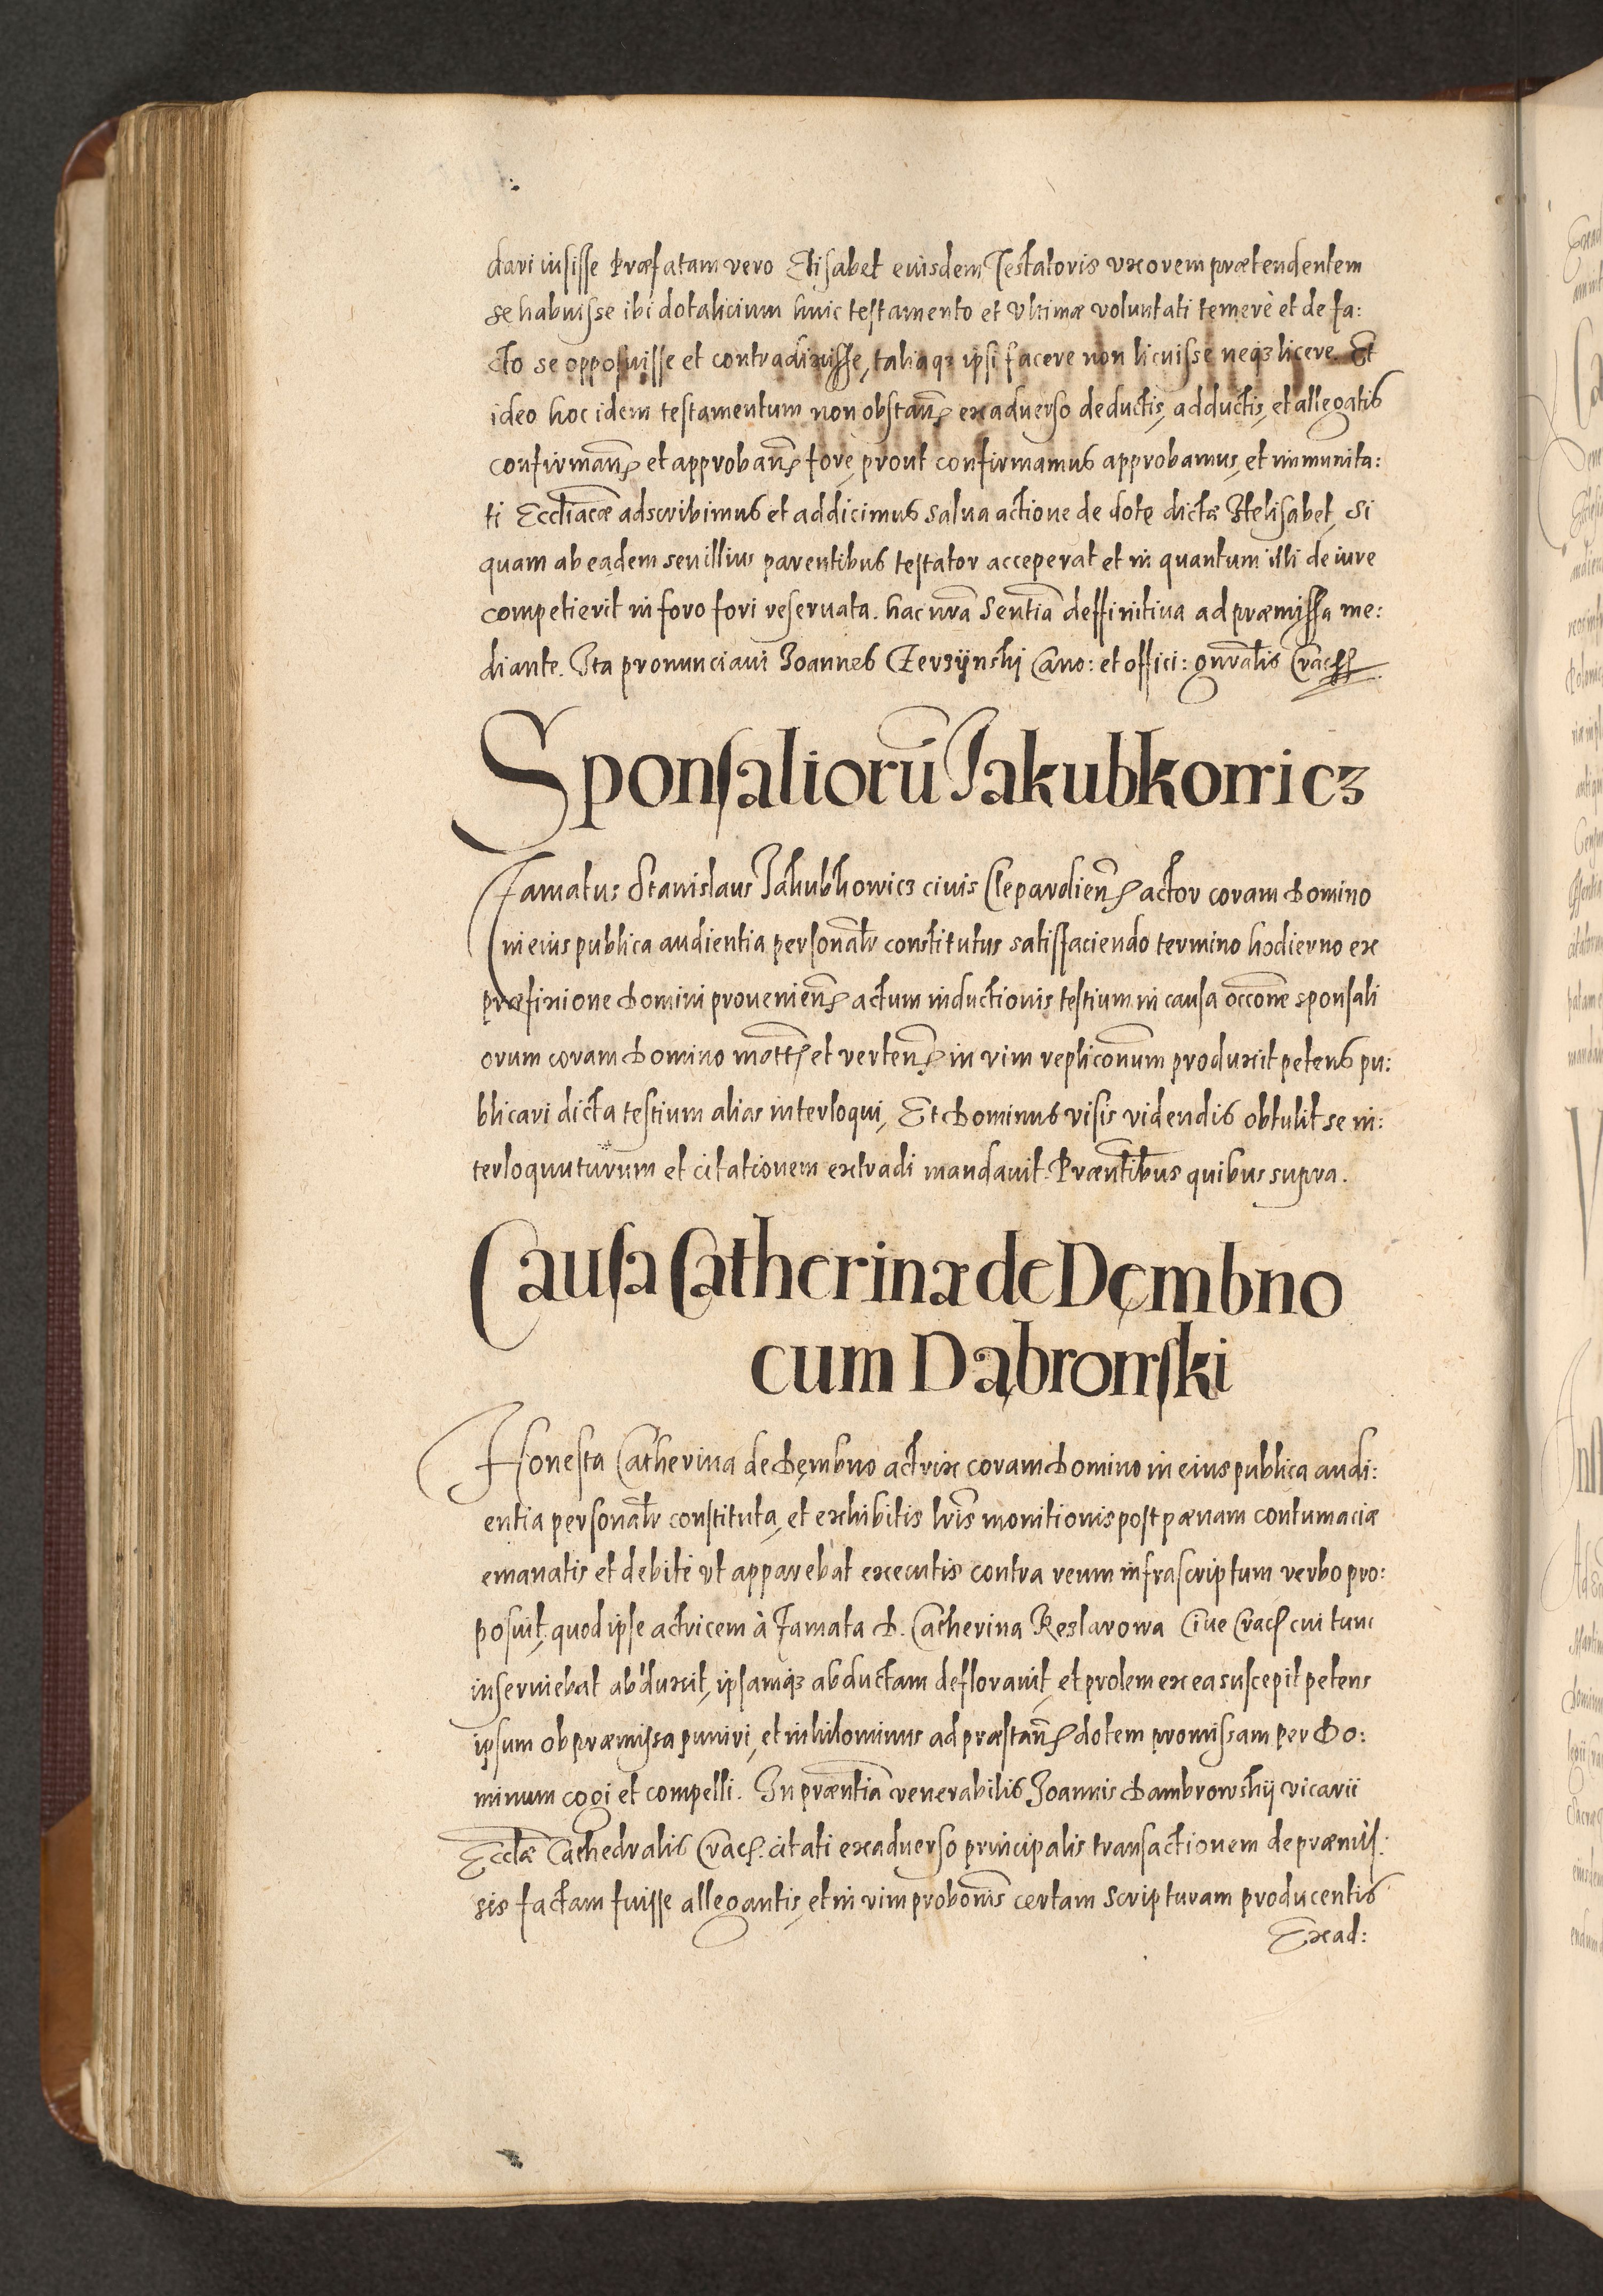 dari iusisse Præfatam vero Elisabet euisdem Testatoris vxorem prætendentem
se habuisse ibi dotalicium huic testamento et Vltimæ voluntati temerè et de fa:
cto se opposuisse et contradixisse, taliaqȝ ipsi facere non licuisse neqȝ licere. Et
ideo hoc idem testamentum non obstan̄ exaduerso deductis, adductis, et allegatis
confirman̄ et approban̄ fore, prout confirmamus approbamus, et immunita:
ti Eccl̄iacæ adscribimus et addicimus salua actione de dote dictæ Helisabet, si
quam ab eadem seu illius parentibus testator acceperat et in quantum illi de iure
competierit in foro fori reseruata. hac nr̄a Sentīa deffinitiua ad præmissa me:
diante. Ita pronunciaui Joannes Cerzijnskj Cano: et offici: gnr̄alis Crac
Sponsaliorū Jakubkowicz
Famatus Stanislaus Jakubkowicz ciuis Clepardien̄ actor coram Domino
in eius publica audientia personal̄r constitutus satisfaciendo termino hodierno ex
præfixione Domini prouenien̄ actum inductionis testium in causa occōne sponsali
orum coram Domino mott̄ et verten̄ in vim replicōnum produxit petens pu:
blicari dicta testium alias interloqui, Et Dominus visis videndis obtulit se in:
terloquuturum et citationem extradi mandauit. Præntībus quibus supra.
Causa Catherinæ de Dęmbno
cum Dąbrowski
Honesta Catherina de Dęmbno actrix coram Domino in eius publica audi:
entia personal̄r constituta, et exhibitis lr̄is monitionis post pænam contumaciæ
emanatis et debite vt apparebat executis contra reum infrascriptum verbo pro:
posuit, quod ipse actricem à Famata D. Catherina Keslarowa Ciue Crac cui tunc
inseruiebat abduxit, ipsamqȝ abductam deflorauit, et prolem ex ea suscepit petens
ipsum ob præmissa puniri, et nihilominus ad præstan̄ dotem promissam per Do:
minum cogi et compelli. In præntīa venerabilis Joannis Dambrowskij vicarii
Eccl̄æ Cathedralis Crac. citati exaduerso principalis transactionem de præmis:
sis factam fuisse allegantis, et in vim probōnis certam scripturam producentis
Exad: